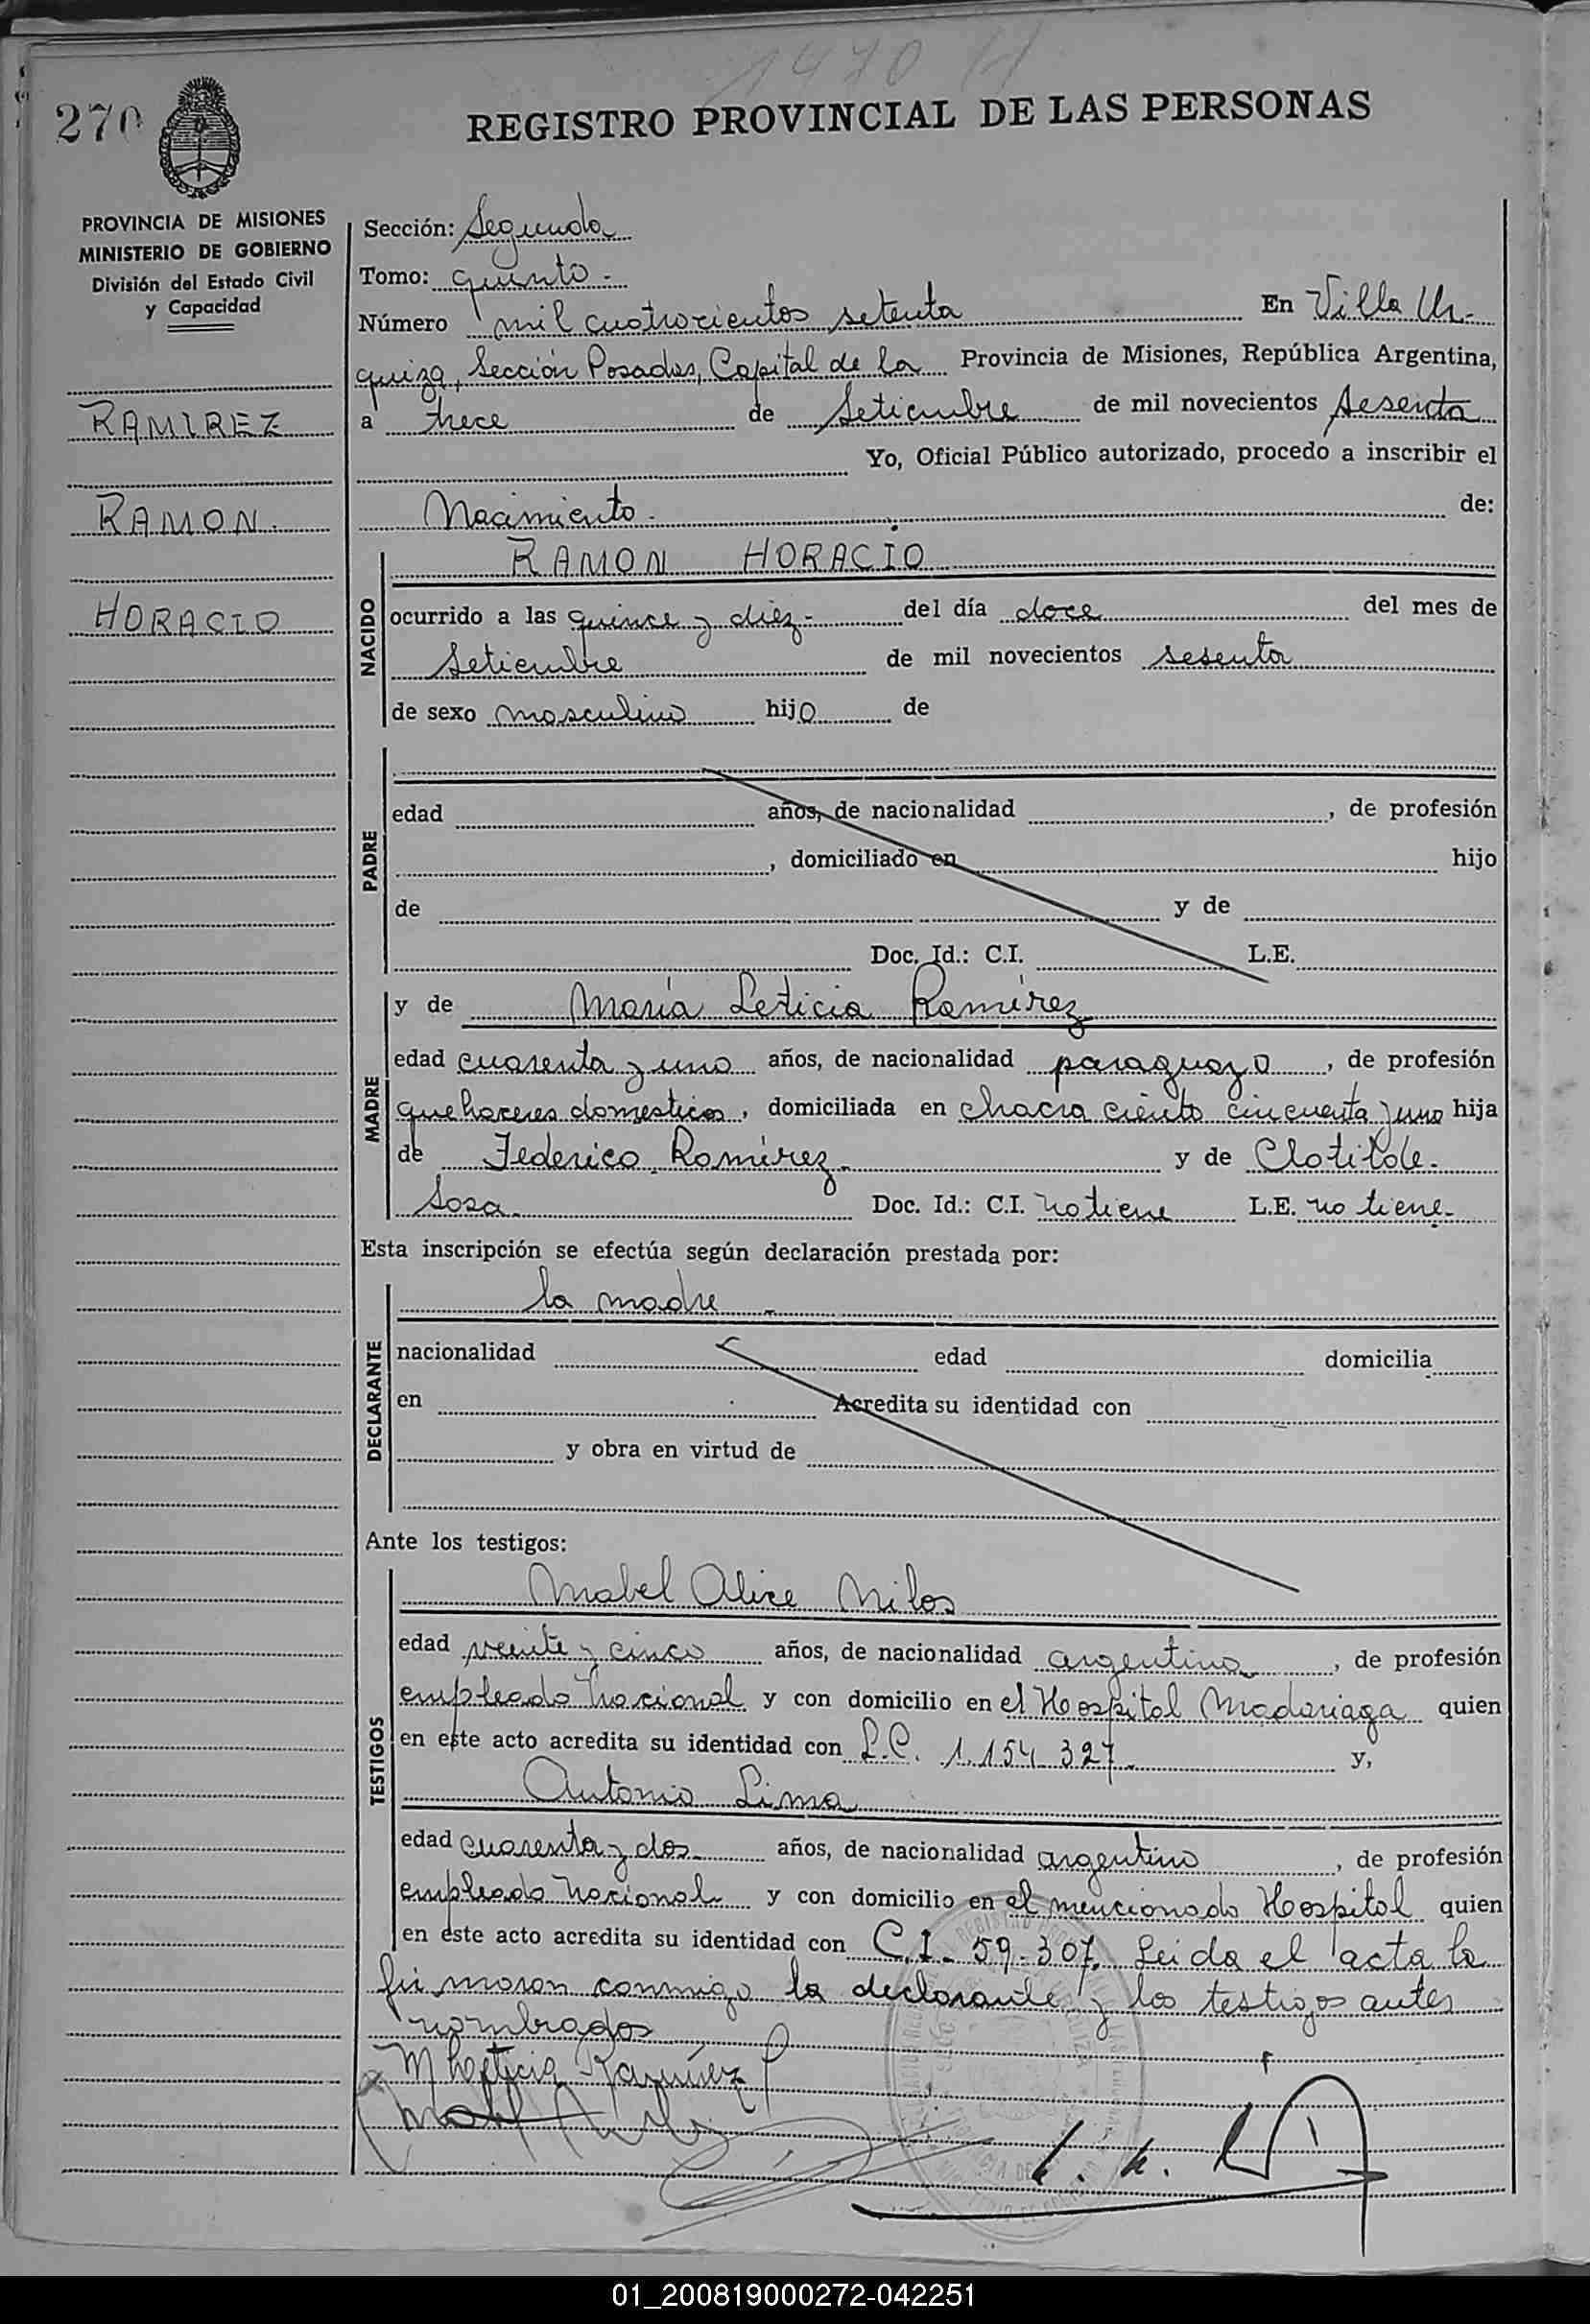 1470 H
270
REGISTRO PROVINCIAL DE LAS PERSONAS
PROVINCIA DE MISIONES
MINISTERIO DE GOBIERNO
División del Estado Civil
y Capacidad
RAMIREZ
RAMON.
HORACIO
Sección: Segunda
Tomo: quinto.
Número mil cuatrocientos setenta En Villa Ur-
quiza, Sección Posadas, Capital de la Provincia de Misiones, República Argentina,
a trece de Setiembre de mil novecientos sesenta
Yo, Oficial Público autorizado, procedo a inscribir el
Nacimiento. de:
NACIDO
RAMON HORACIO
ocurrido a las quince y diez- del día doce del mes de
Setiembre de mil novecientos sesenta
de sexo masculino hijo de
PADRE
edad años, de nacionalidad , de profesión
, domiciliado en hijo
de y de
Doc. Id.: C.I. L.E.
MADRE
y de María Leticia Ramírez
edad cuarenta y uno años, de nacionalidad paraguaya, de profesión
quehaceres domesticos, domiciliada en chacra ciento cincuenta y uno hija
de Federico Ramírez. y de Clotilde.
Sosa. Doc. Id.: C.I. no tiene L.E. no tiene-
Esta inscripción se efectúa según declaración prestada por:
DECLARANTE
la madre -
nacionalidad edad domicilia
en Acredita su identidad con
y obra en virtud de
Ante los testigos:
TESTIGOS
Mabel Alice Milos
edad veinte y cinco años, de nacionalidad argentina, de profesión
empleada Nacional y con domicilio en el Hospital Madariaga quien
en este acto acredita su identidad con L.C. 1.154.327. y,
Antonio Lima
edad cuarenta y dos. años, de nacionalidad argentino, de profesión
empleado Nacional y con domicilio en el mencionado Hospital quien
en este acto acredita su identidad con C.I. 59.307. Leida el acta la
firmaron conmigo la declarante y los testigos antes
nombrados
M Leticia Ramírez
01_200819000272-042251